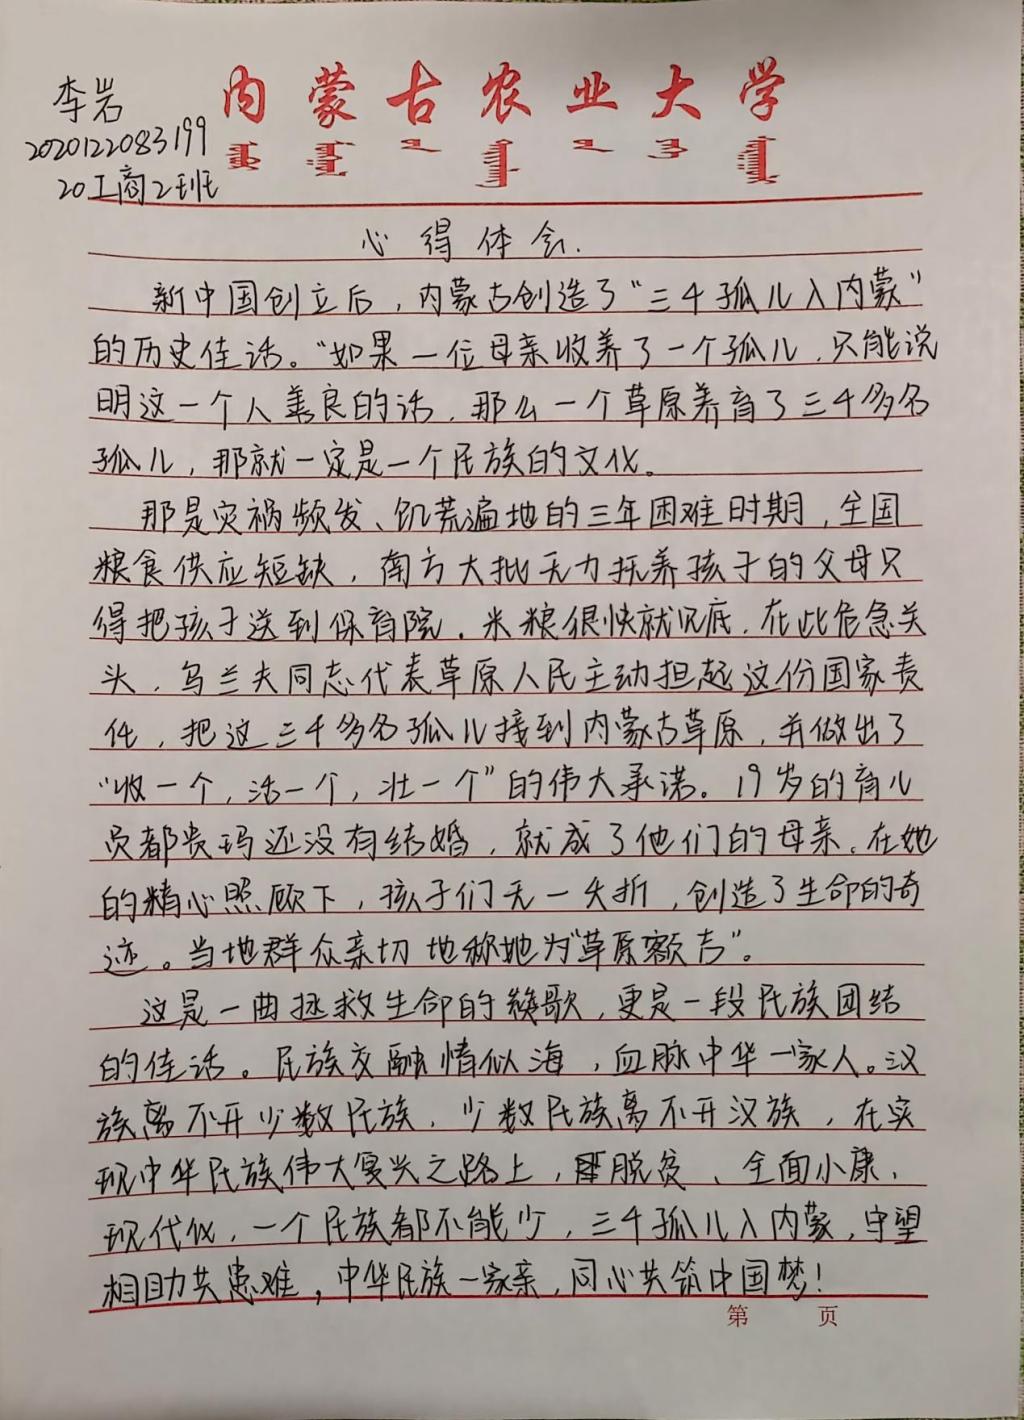 内蒙古农业大学
李岩
2020122083199
20工商2班
心得体会.
新中国创立后，内蒙古创造了“三千孤儿入内蒙”
的历史佳话。“如果一位母亲收养了一个孤儿，只能说
明这一个人善良的话，那么一个草原养育了三千多名
孤儿，那就一定是一个民族的文化。
那是灾祸频发、饥荒遍地的三年困难时期，全国
粮食供应短缺，南方大批无力抚养孩子的父母只
得把孩子送到保育院，米粮很快就见底，在此危急关
头，乌兰夫同志代表草原人民主动担起这份国家责
任，把这三千多名孤儿接到内蒙古草原，并做出了
“收一个，活一个，壮一个”的伟大承诺。19岁的育儿
员都贵玛还没有结婚，就成了他们的母亲。在她
的精心照顾下，孩子们无一夭折，创造了生命的奇
迹。当地群众亲切地称她为“草原额吉”。
这是一曲拯救生命的歌，更是一段民族团结
的佳话。民族交融情似海，血脉中华一家人。汉
族离不开少数民族，少数民族离不开汉族，在实
现中华民族伟大复兴之路上，脱贫、全面小康、
现代化，一个民族都不能少，三千孤儿入内蒙，守望
相助共患难，中华民族一家亲，同心共筑中国梦！
第 页